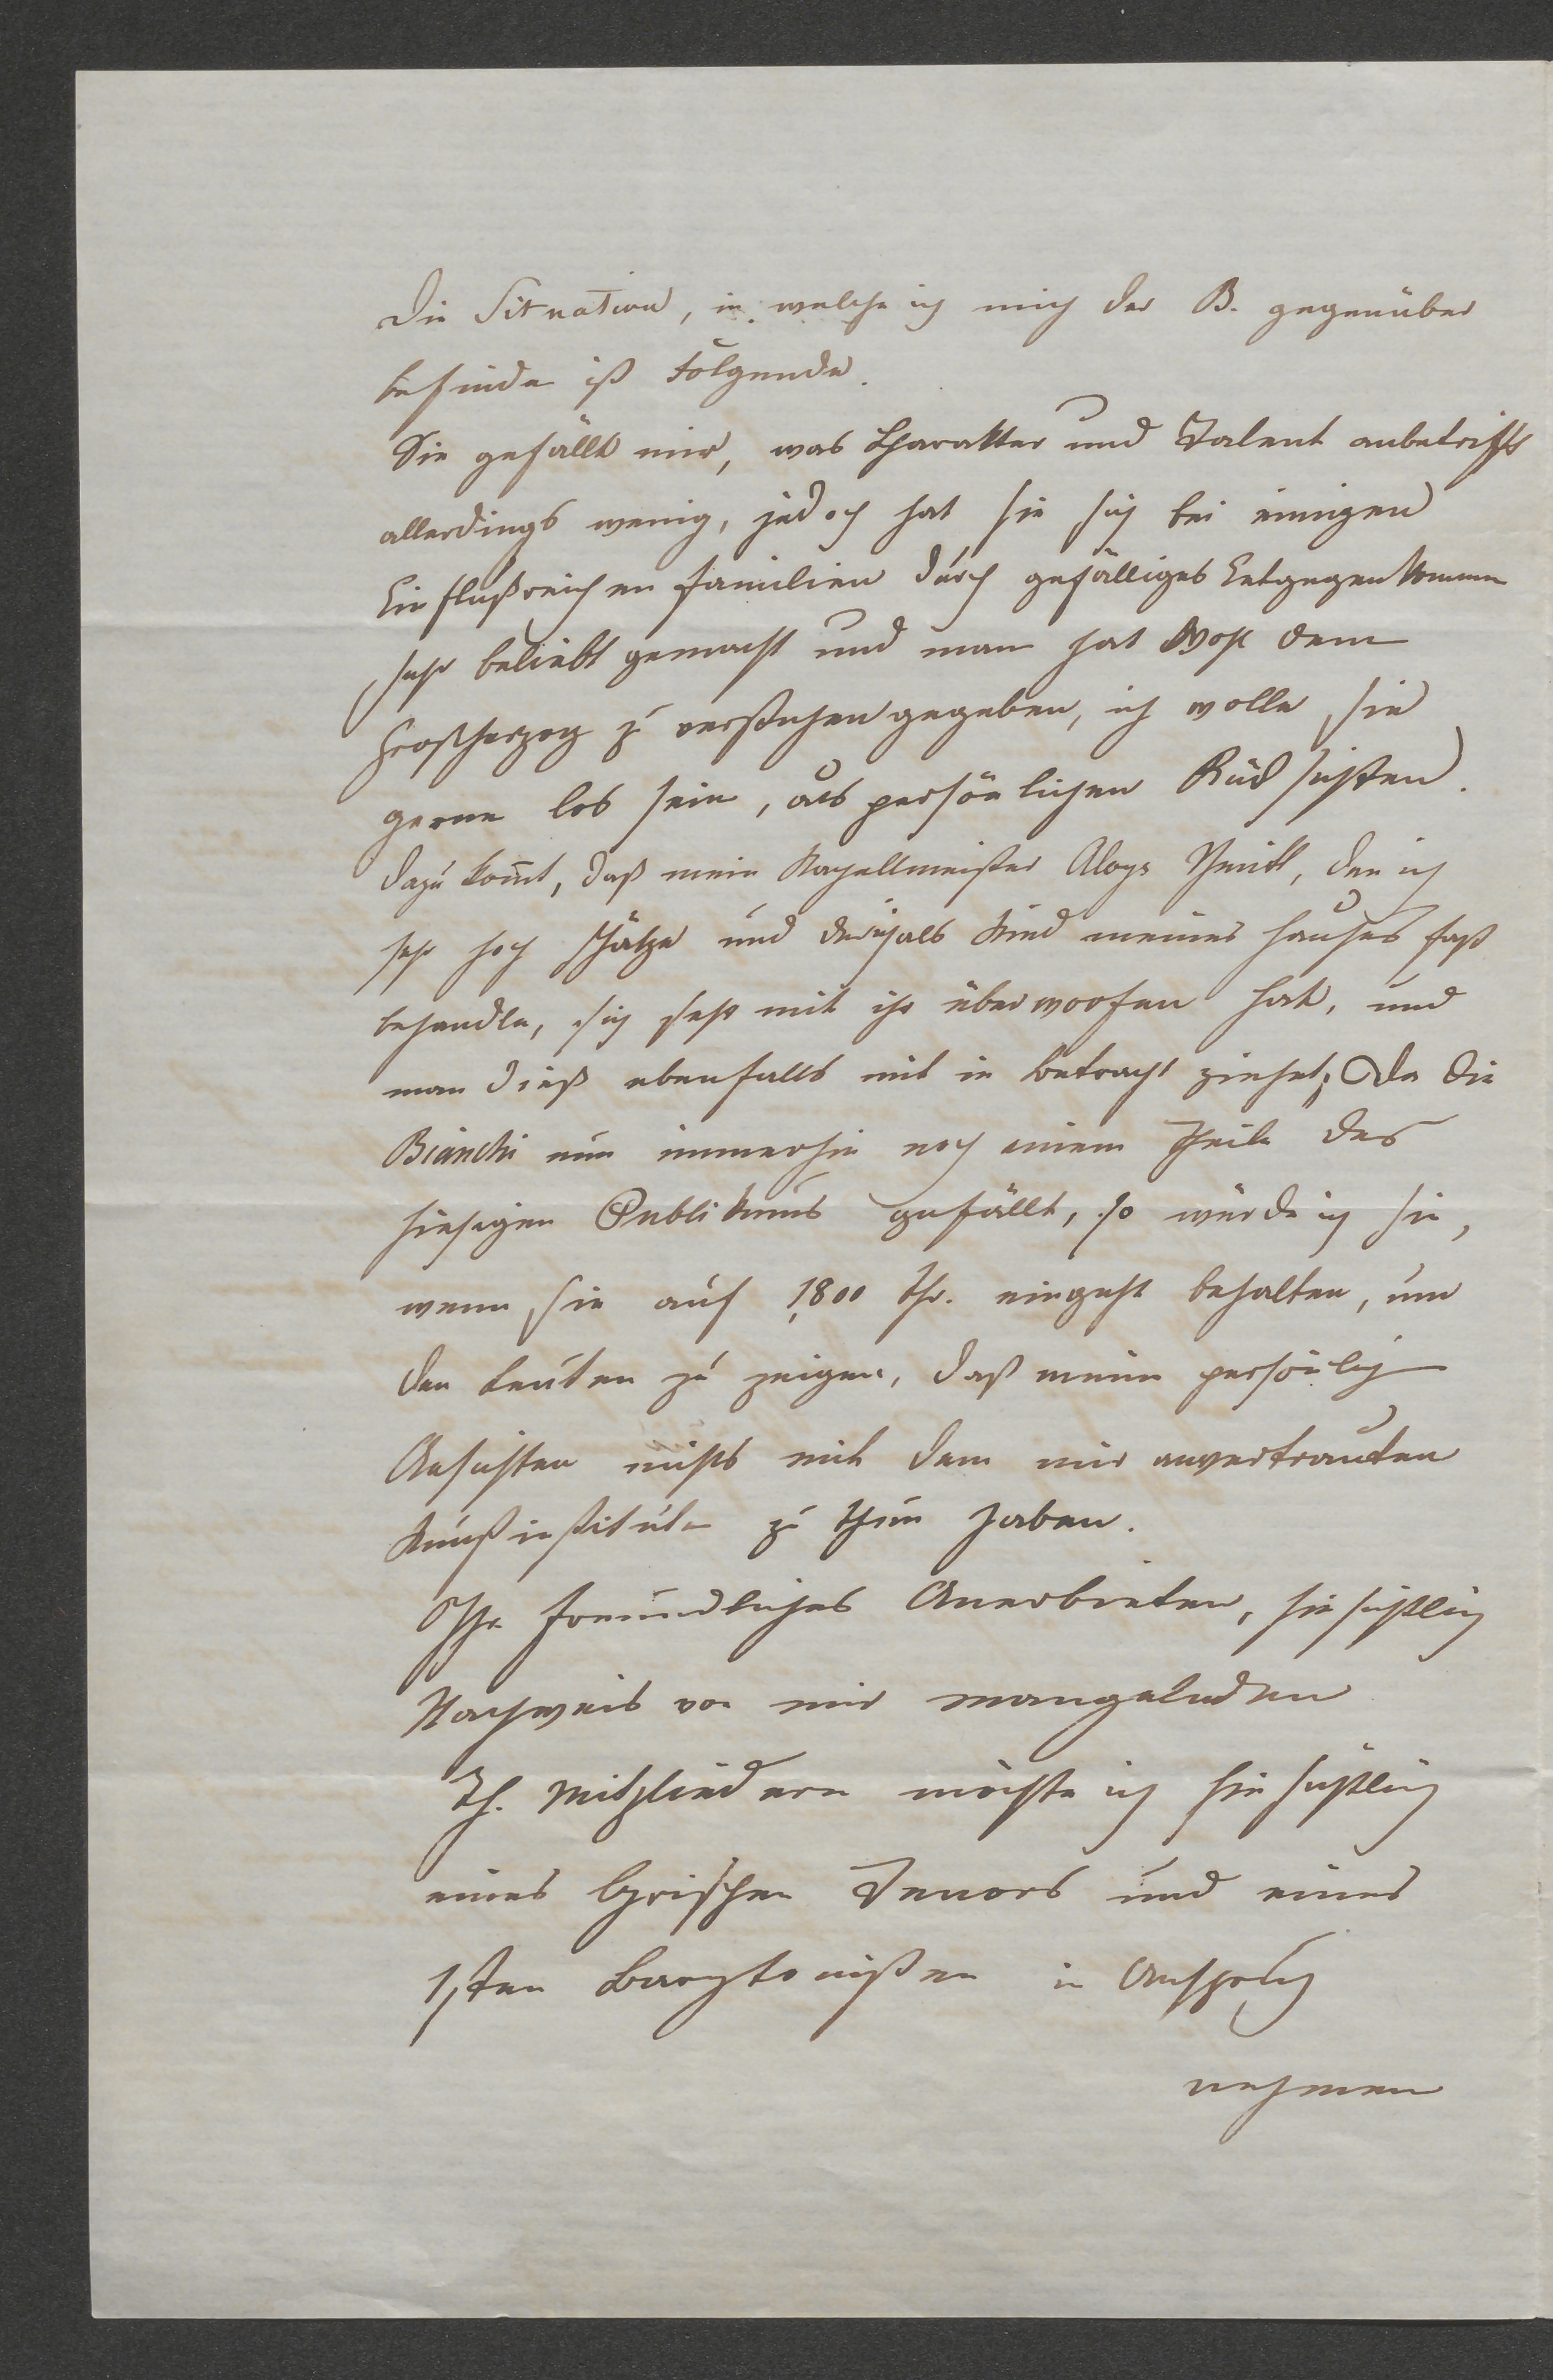 Die Situation, in welche ich mich der B. gegenüber
befinde ist Folgende.
Sie gefällt mir, was Charakter und Talent anbetrifft
allerdings wenig, jedoch hat sie sich bei einigen
Einflußreichen Familien durch gefälliges Entgegenkommen
sehr beliebt gemacht und man hat Wohl dem
Großherzog zu verstehen gegeben, ich wolle sie
gerne los sein, aus persönlichen Rücksichten.
Dazu kom̄t, daß mein Kapellmeister Aloys Schmitt, den ich
sehr hoch schätze und als Kind meines Hauses fast
behandle, sich sehr mit ihr überworfen hat, und
man dieß ebenfalls mit in Betracht ziehet; Da die
Bianchi nun immerhin noch einem Theile des
hiesigen Publikums gefällt, so würde ich sie,
wenn sie auf 1,800 Thr. eingeht behalten, um
den Leuten zu zeigen, daß meine persönlich
Ansichten nichts mit dem mir anvertrauten
Kunstinstitute zu thun haben.
Ihr freundliches Anerbieten, hinsichtlich
Nachweis von mir mangelnden
Th. Mitgliedern möchte ich hinsichtlich
eines lyrischen Tenors und eines
1sten Barytonisten in Anspruch
nehmen